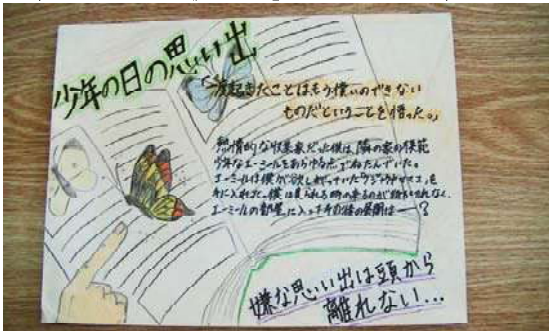 少年の日の思い出
「一度起きたことはもう償いのできない
ものだということを悟った。」
熱情的な収集家だった僕は、隣の家の模範
少年なエーミールをあらゆる点でねたんでいた。
エーミールは僕が欲しがっていた「クジャクヤママユ」を
手に入れた。僕は見られる時の来るのが待ちきれなく、
エーミールの部屋に入った。その後の展開は——？
嫌な思い出は頭から
離れない…